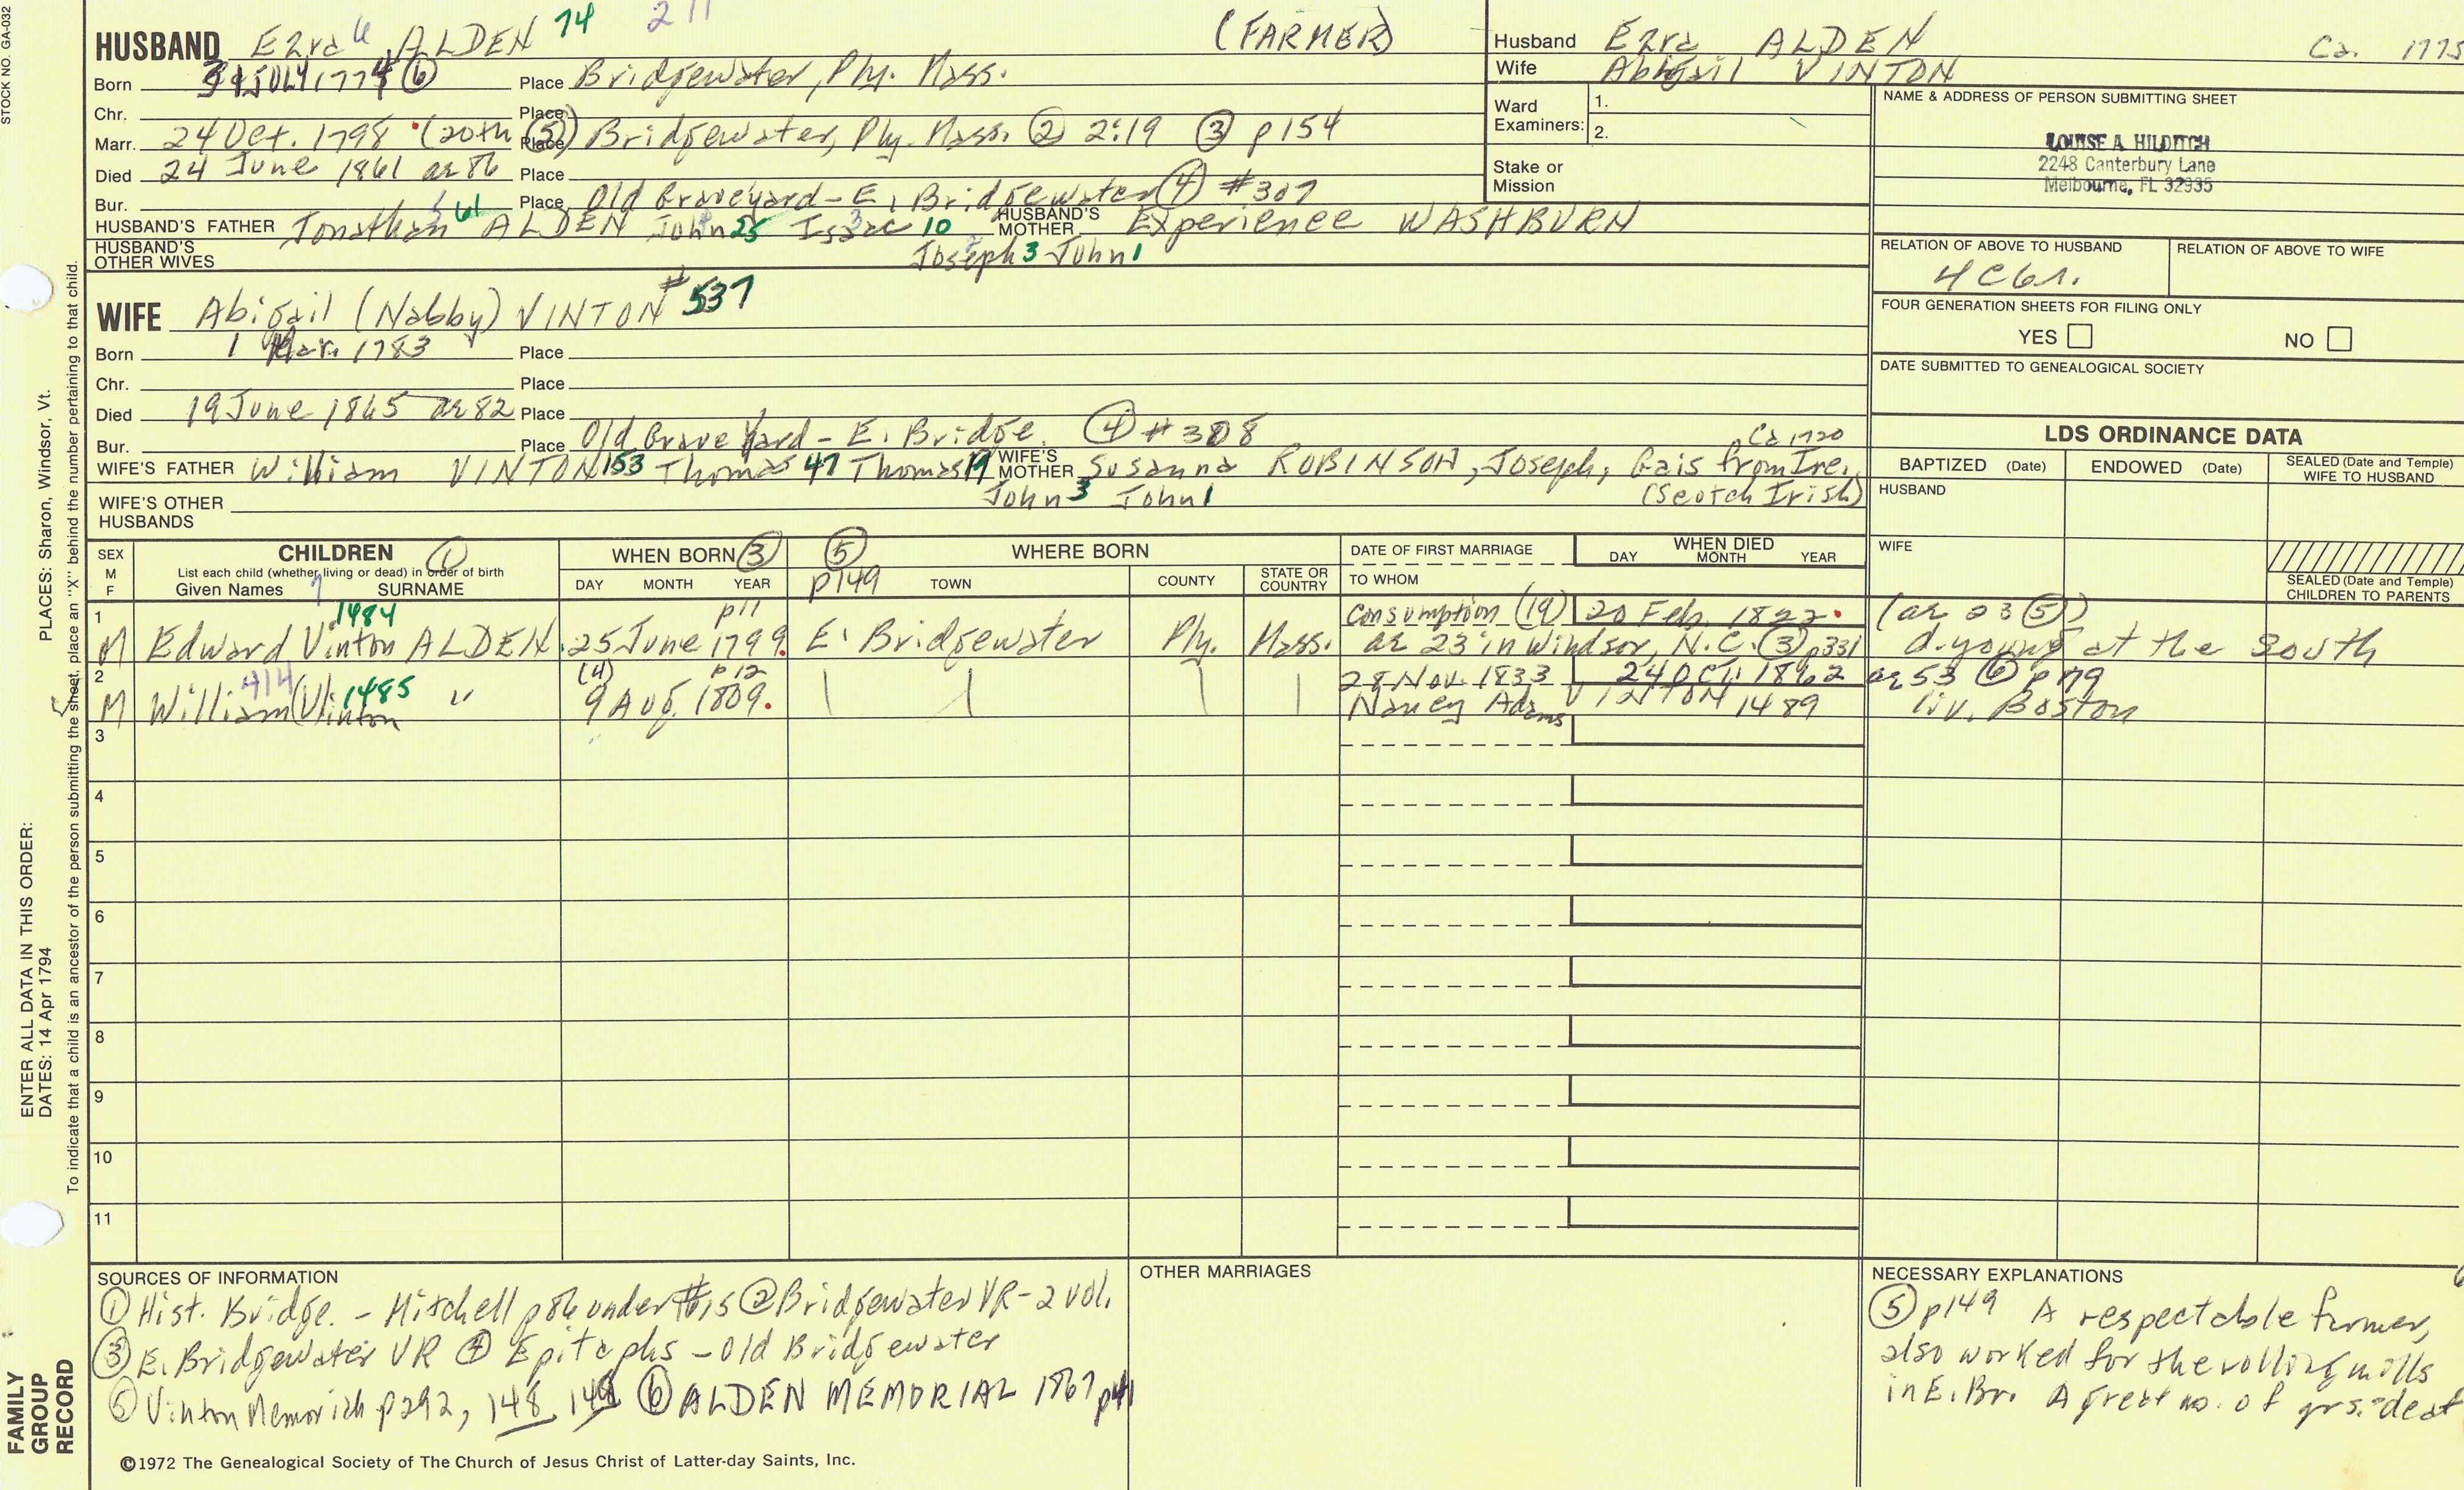 STOCK NO. GA-032
HUSBAND Ezra 6 ALDEN 74 211 (FARMER)
Born JULY 177 ⑥ Place Bridgewater, Ply. Mass.
Chr. Place
Marr. 24 Oct. 1798 (20th ⑤) Place Bridgewater, Ply. Mass. ② 2:19 ③ p154
Died 24 June 1861 ae 86 Place
Bur. Place Old Graveyard - E. Bridgewater ④ #307
HUSBAND'S FATHER Jonathan 61 ALDEN John 25 Isaac 10 HUSBAND'S MOTHER Experience WASHBURN
HUSBAND'S OTHER WIVES Joseph 3 John 1
WIFE Abigail (Nabby) VINTON #537
Born 1 Mar. 1783 Place
Chr. Place
Died 19 June 1865 ae 82 Place
Bur. Place Old Grave Yard - E. Bridge. ④ #308
Ca 1720
WIFE'S FATHER William VINTON 153 Thomas 47 Thomas 19 WIFE'S MOTHER Susanna ROBINSON, Joseph, Gais from Ire.
John 3 John 1 (Scotch Irish)
WIFE'S OTHER HUSBANDS
Husband Ezra ALDEN Ca. 1775
Wife Abigail VINTON
Ward Examiners: 1.
2.
Stake or Mission
NAME & ADDRESS OF PERSON SUBMITTING SHEET
LOUISE A. HILDITCH
2248 Canterbury Lane
Melbourne, FL 32935
RELATION OF ABOVE TO HUSBAND RELATION OF ABOVE TO WIFE
4C6r.
FOUR GENERATION SHEETS FOR FILING ONLY
YES NO
DATE SUBMITTED TO GENEALOGICAL SOCIETY
LDS ORDINANCE DATA
BAPTIZED (Date) ENDOWED (Date) SEALED (Date and Temple) WIFE TO HUSBAND
HUSBAND
WIFE
SEALED (Date and Temple) CHILDREN TO PARENTS
SEX M F
CHILDREN ①
List each child (whether living or dead) in order of birth
Given Names 7 SURNAME
WHEN BORN ③
DAY MONTH YEAR
⑤ p149
WHERE BORN
TOWN COUNTY STATE OR COUNTRY
DATE OF FIRST MARRIAGE
TO WHOM
WHEN DIED
DAY MONTH YEAR
1 1484 p11 Consumption (19) 20 Feb. 1822. (ae 23 ⑤)
M Edward Vinton ALDEN 25 June 1799. E. Bridgewater Ply. Mass. ae 23 in Windsor, N.C. ③ p331 d. young at the South
2 414 1485 (4) p12 28 Nov. 1833 24 Oct. 1862 ae 53 ⑥ p79
M William (V)inton " 9 Aug. 1809. Nancy Adams VINTON 1489 liv. Boston
3
4
5
6
7
8
9
10
11
SOURCES OF INFORMATION
① Hist. Bridge. - Mitchell p86 under #15 ② Bridgewater VR - 2 vol.
③ E. Bridgewater VR ④ Epitaphs - Old Bridgewater
⑤ Vinton Memorial p292, 148, 149 ⑥ ALDEN MEMORIAL 1867 p41
OTHER MARRIAGES
NECESSARY EXPLANATIONS
⑤ p149 A respectable farmer,
also worked for the rolling mills
in E. Br. A great no. of grs.
©1972 The Genealogical Society of The Church of Jesus Christ of Latter-day Saints, Inc.
ENTER ALL DATA IN THIS ORDER:
DATES: 14 Apr 1794
PLACES: Sharon, Windsor, Vt.
To indicate that a child is an ancestor of the person submitting the sheet, place an "X" behind the number pertaining to that child.
FAMILY
GROUP
RECORD